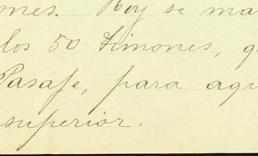 mes. Hoy se ma
los 50 timones, q
Pasaje, para aqu
superior.